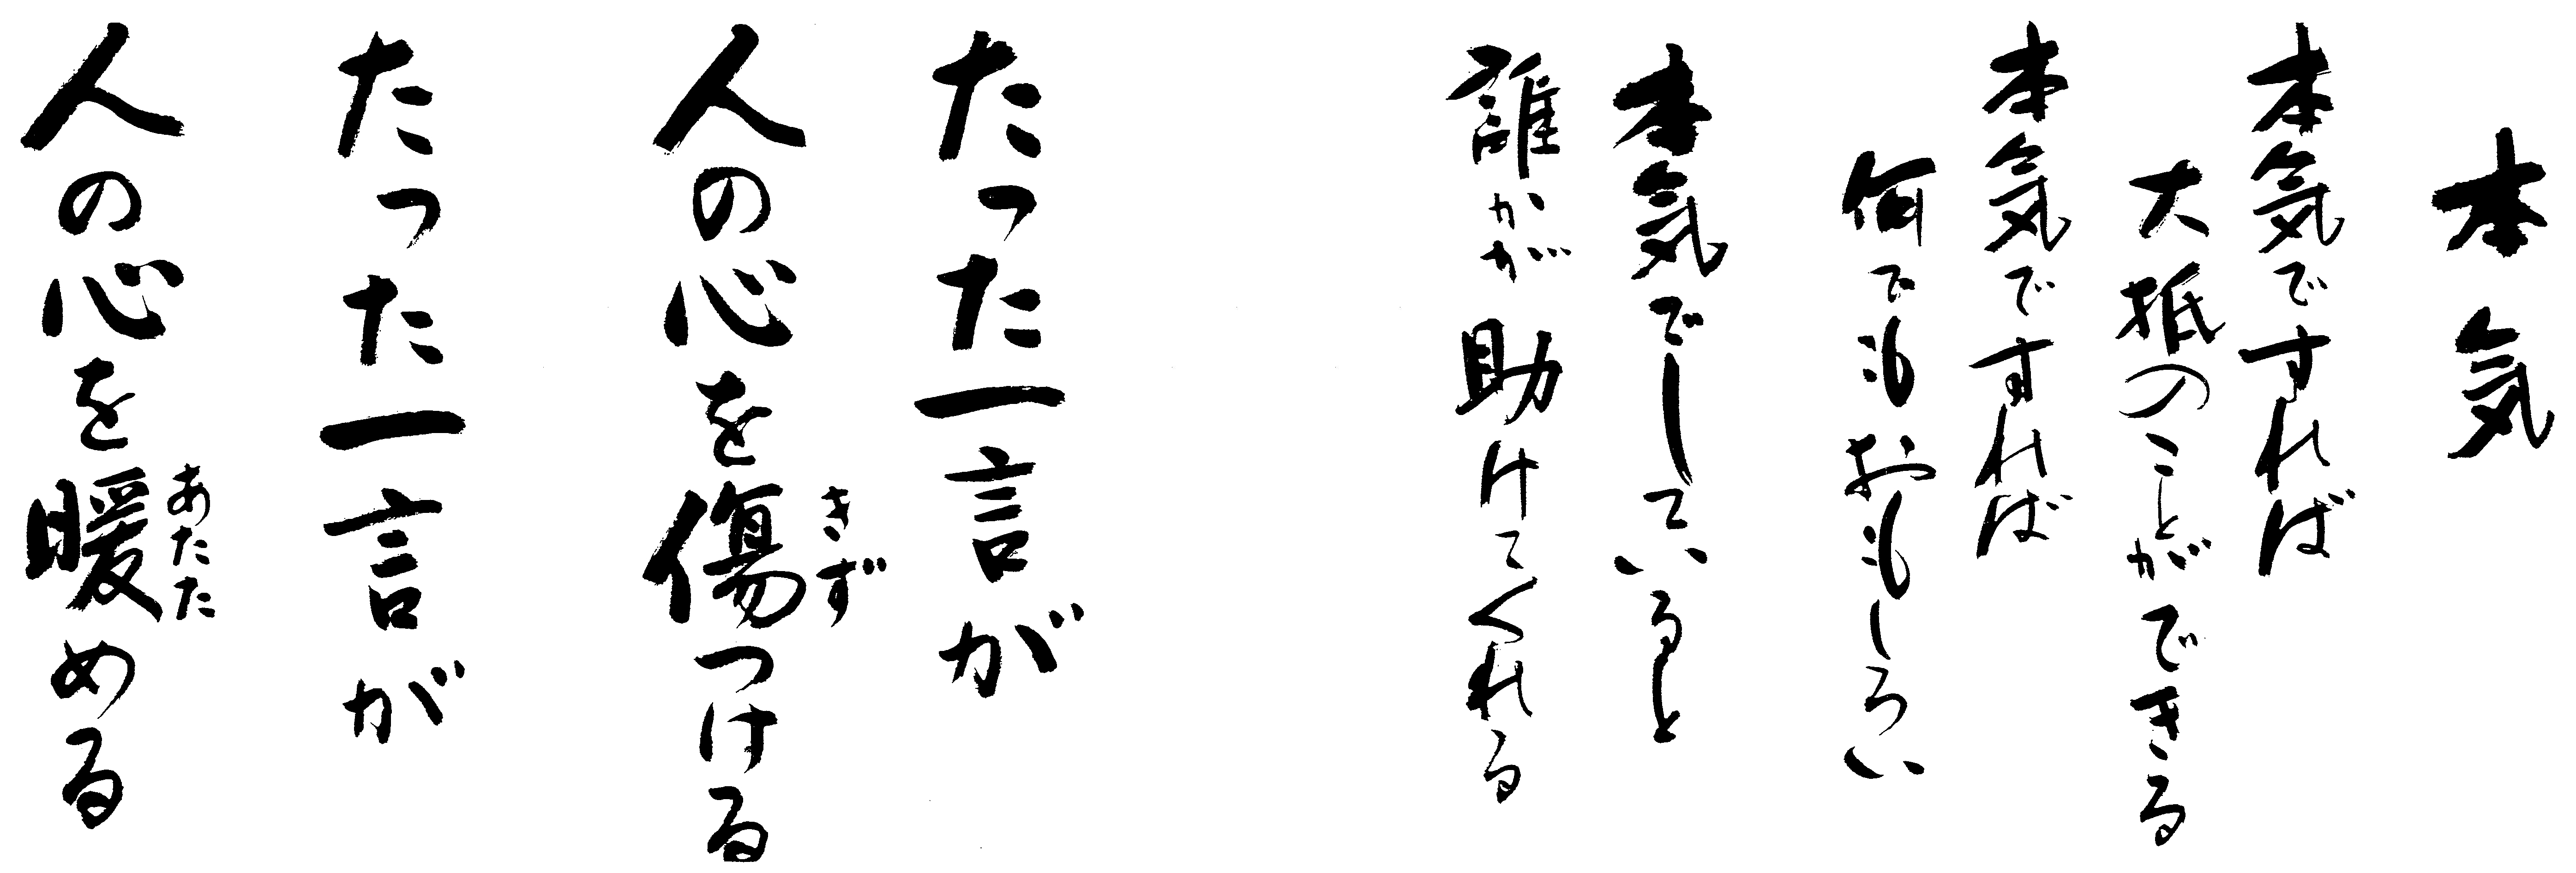 本気
本気ですれば
大抵のことができる
本気ですれば
何でもおもしろい
本気でしていると
誰かが助けてくれる
たった一言が
人の心を傷つける
きず
たった一言が
人の心を暖める
あたた